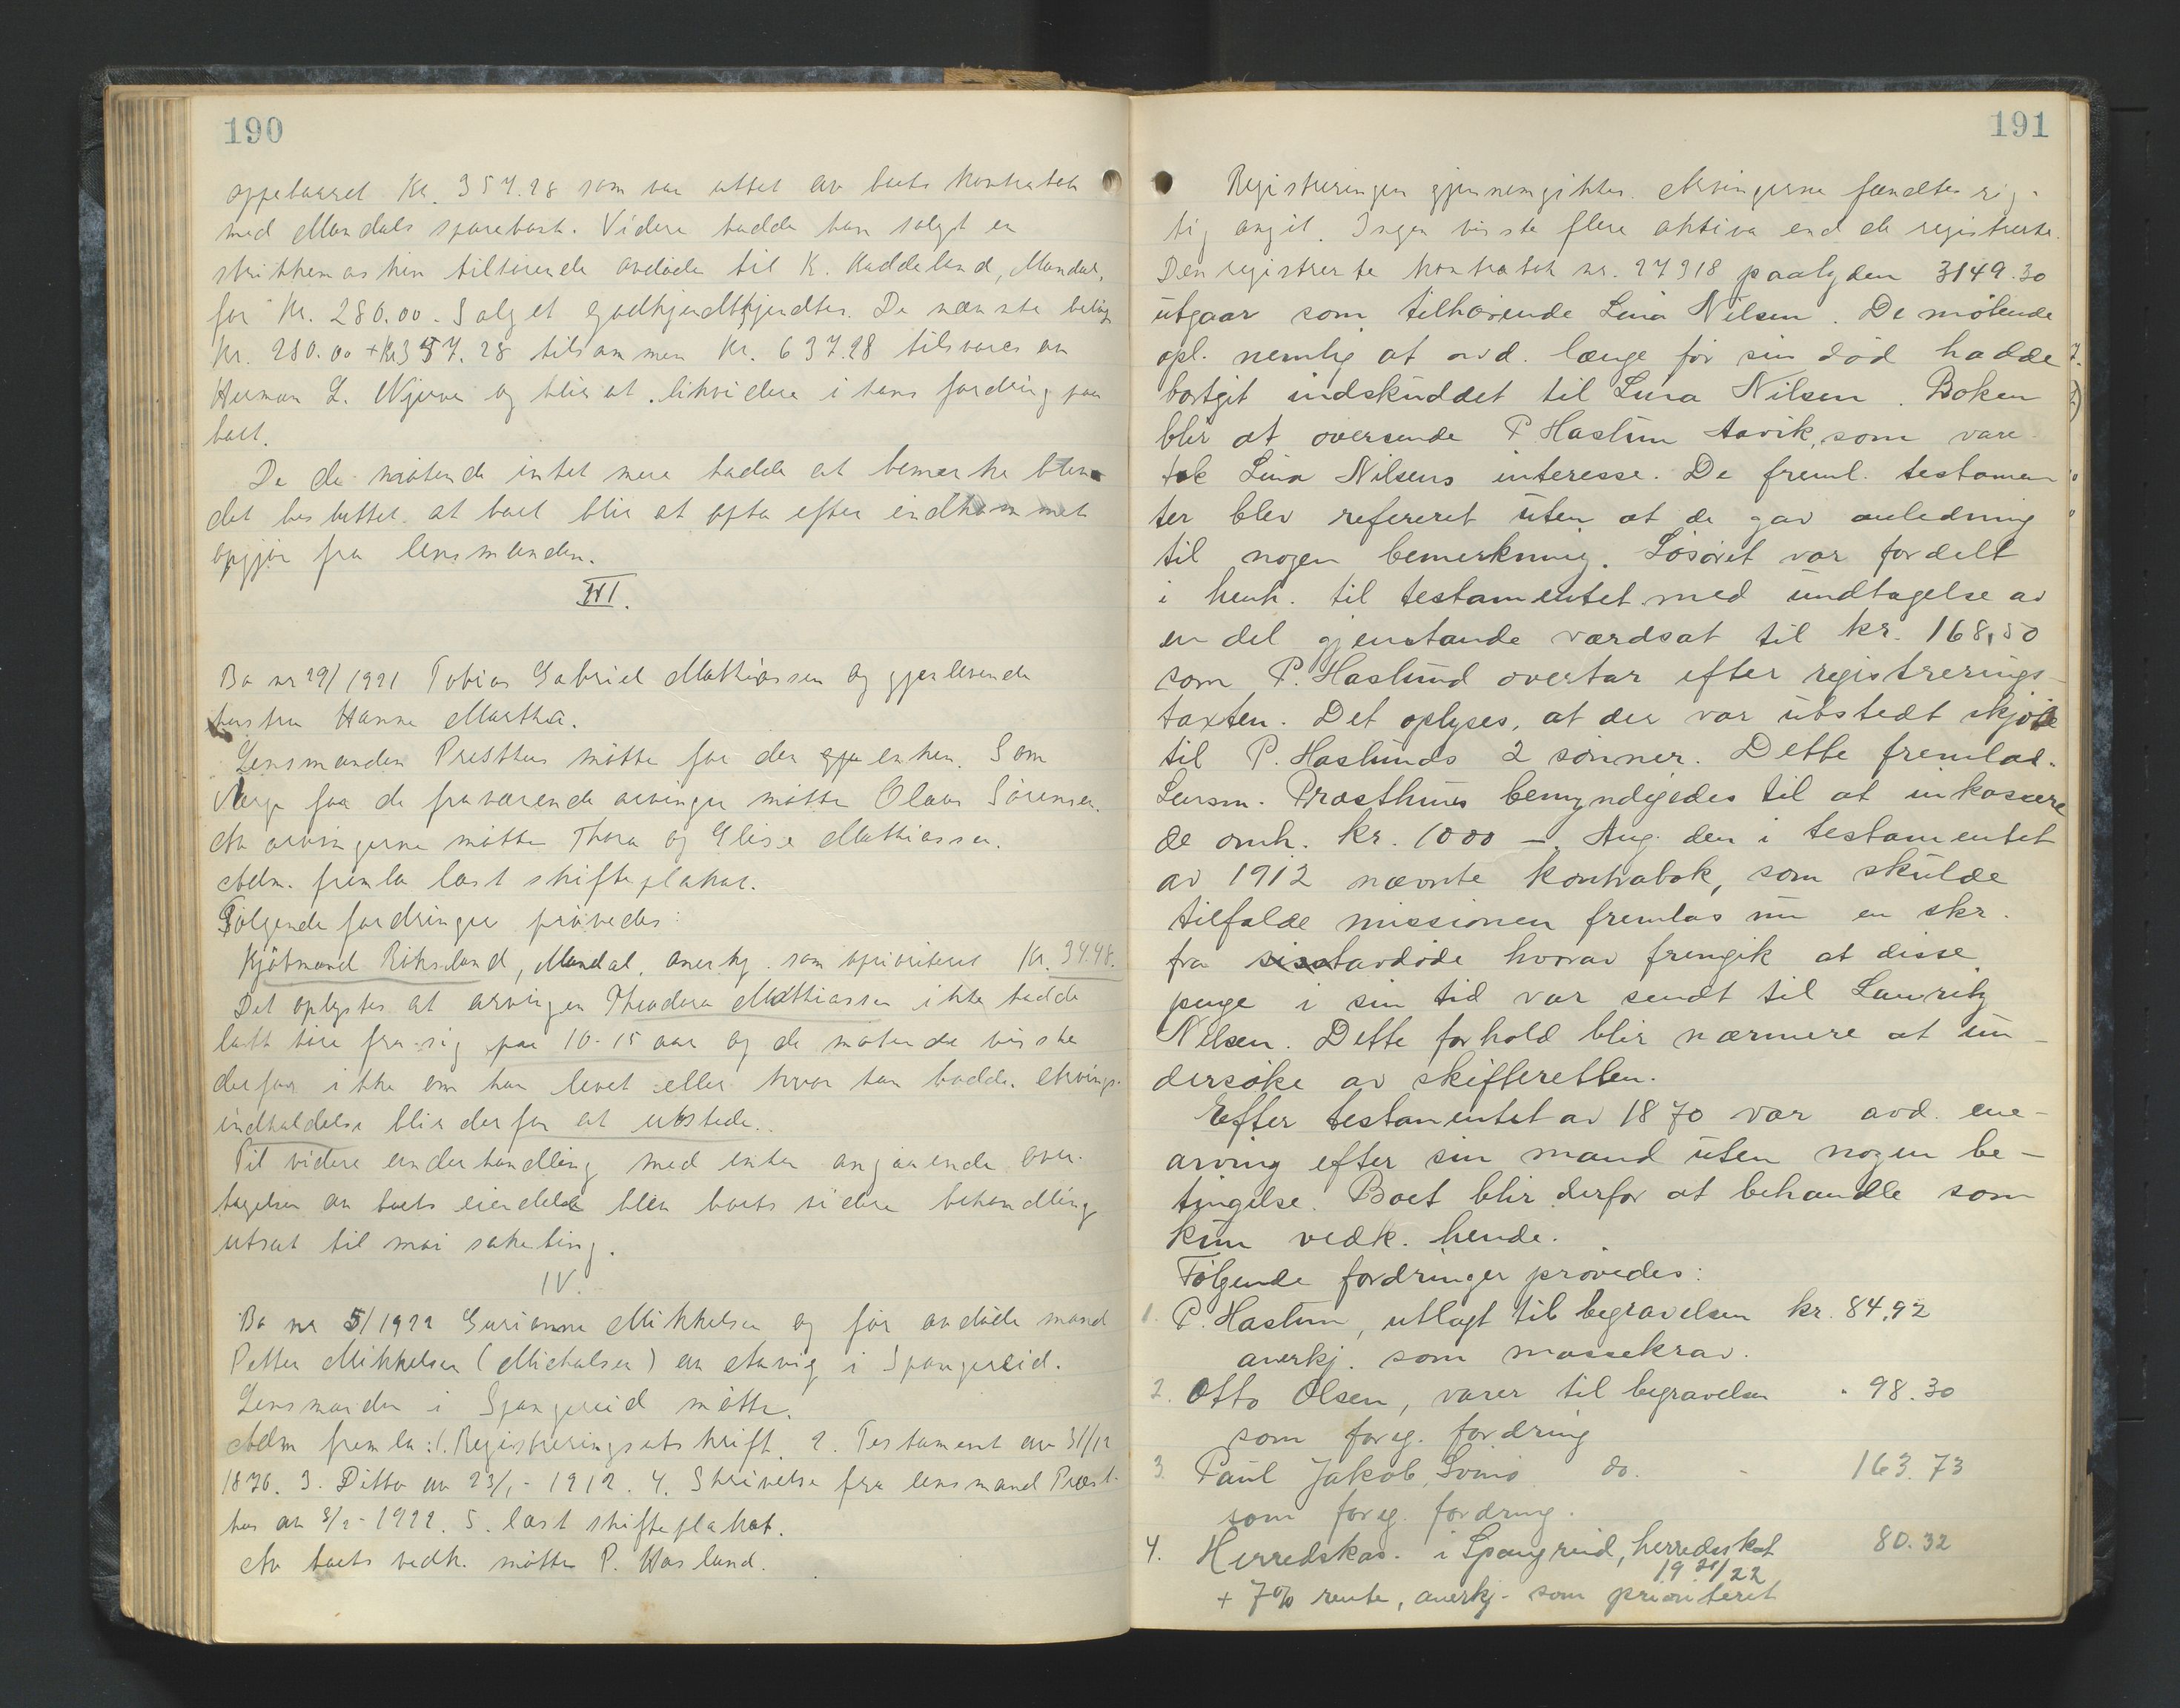 190
oppebaaret Kr. 357.28 som var uttat av boets kontrabok
med Mandals sparebank. Videre hadde han solgt en
strikkemaskin tilhörende avdöde til K. Haddeland, Mandal,
for Kr. 280.00. Salget godkjendtkjendtes. De nævnte belöp
Kr. 280.00 + Kr 357.28 tilsammen Kr. 637.28 tilsvares av
Herman L. Njerve og blir at likvidere i hans fordring paa
boet.
Da de mötende intet mere hadde at bemerke blev
det besluttet at boet blir at opta efter indkommet
opgjör fra lensmanden.
III.
Bo nr 29/1921 Tobias Gabriel Mathiassen og gjenlevende
hustru Hanna Martha.
Lensmanden Presthus mötte for den enken. Som
Verge for de fraværende arvinger mötte Olaus Sörensen.
Av arvingerne mötte Thora og Elise Mathiassen.
Adm. fremla læst skifteplakat.
Fölgende fordringer prövedes:
Kjöbmand Riksland, Mandal, anerkj. som uprioriteret Kr. 34.48.
Det oplystes at arvingen Theodor Mathiassen ikke hadde
latt höre fra sig paa 10-15 aar og de mötende visste
derfor ikke om han levet eller hvor han bodde. Arvings-
indkaldelse blir derfor at utstede.
Til videre underhandling med enken angaaende over-
tagelsen av boets eiendele blev boets videre behandling
utsat til mai saketing.
IV.
Bo nr 5/1922 Gurianna Mikkelsen og för avdöde mand
Petter Mikkelsen (Michalsen) av Aavig i Spangereid.
Lensmanden i Spangereid mötte.
Adm fremla: 1. Registreringsutskrift. 2. Testament av 31/12
1870. 3. Ditto av 23/1-1912. 4. Skrivelse fra lensmand Præst-
hus av 3/2-1922. 5. læst skifteplakat.
Av boets vedk. mötte P. Haslund.
191
Registreringen gjennemgikkes. Arvingerne fandtes rig-
tig angit. Ingen visste flere aktiva end de registrerte.
Den registrerte kontrabok nr. 27318 paalyden 3149.30
utgaar som tilhörende Lina Nilsen. De mötende
opl. nemlig at avd. længe för sin död hadde
bortgit indskuddet til Lina Nilsen. Boken
blir at oversende P. Haslun Aavik, som vare-
tok Lina Nilsens interesse. De freml. testamen-
ter blev refereret uten at de gav anledning
til nogen bemerkning. Lösöret var fordelt
i henh. til testamentet med undtagelse av
en del gjenstande værdsat til kr. 168,50
som P. Haslund overtar efter registrerings-
taxten. Det oplyses, at der var utstedt skjöte
til P. Haslunds 2 sönner. Dette fremlas.
Lensm. Præsthus bemyndigedes til at inkassere
de omh. kr. 1000 –. Ang. den i testamentet
av 1912 nævnte kontrabok, som skulde
tilfalde missionen fremlas nu en skr.
fra avdöde hvorav fremgik at disse
penge i sin tid var sendt til Lauritz
Nilsen. Dette forhold blir nærmere at un-
dersöke av skifteretten.
Efter testamentet av 1870 var avd. ene-
arving efter sin mand uten nogen be-
tingelse. Boet blir derfor at behandle som
kun vedk. hende.
Fölgende fordringer prövedes:
1. P. Haslun, utlagt til begravelsen kr. 84,92
anerkj. som massekrav.
2. Otto Olsen, varer til begravelsen " 98.30
som foreg. fordring
3. Paul Jakob do. - 163.73
som foreg. fordring.
4. Herredskas. i Spangreid, herredsskat 80.32
19 21/22
+ 7% rente, anerkj. som prioriteret